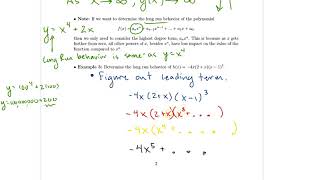 As x → ∞, y(x) → ∞
• Note: If we want to determine the long run behavior of the polynomial
then we only need to consider the highest degree term, aₙxⁿ. This is because as x gets
further from zero, all other powers of x, besides xⁿ, have less impact on the value of the
function compared to xⁿ.
y = x⁴ + 2x
Long Run behavior is same as y = x⁴
• Example 3: Determine the long run behavior of h(x) = −4x(2 + x)(x − 1)³.
• Figure out leading term.
-4x(2+x)(x-1)³
y = 100⁴ + 2(100)
-4x(2+x)(x³+...)
-4x(x⁴+...)
-4x⁵ + . . .
2